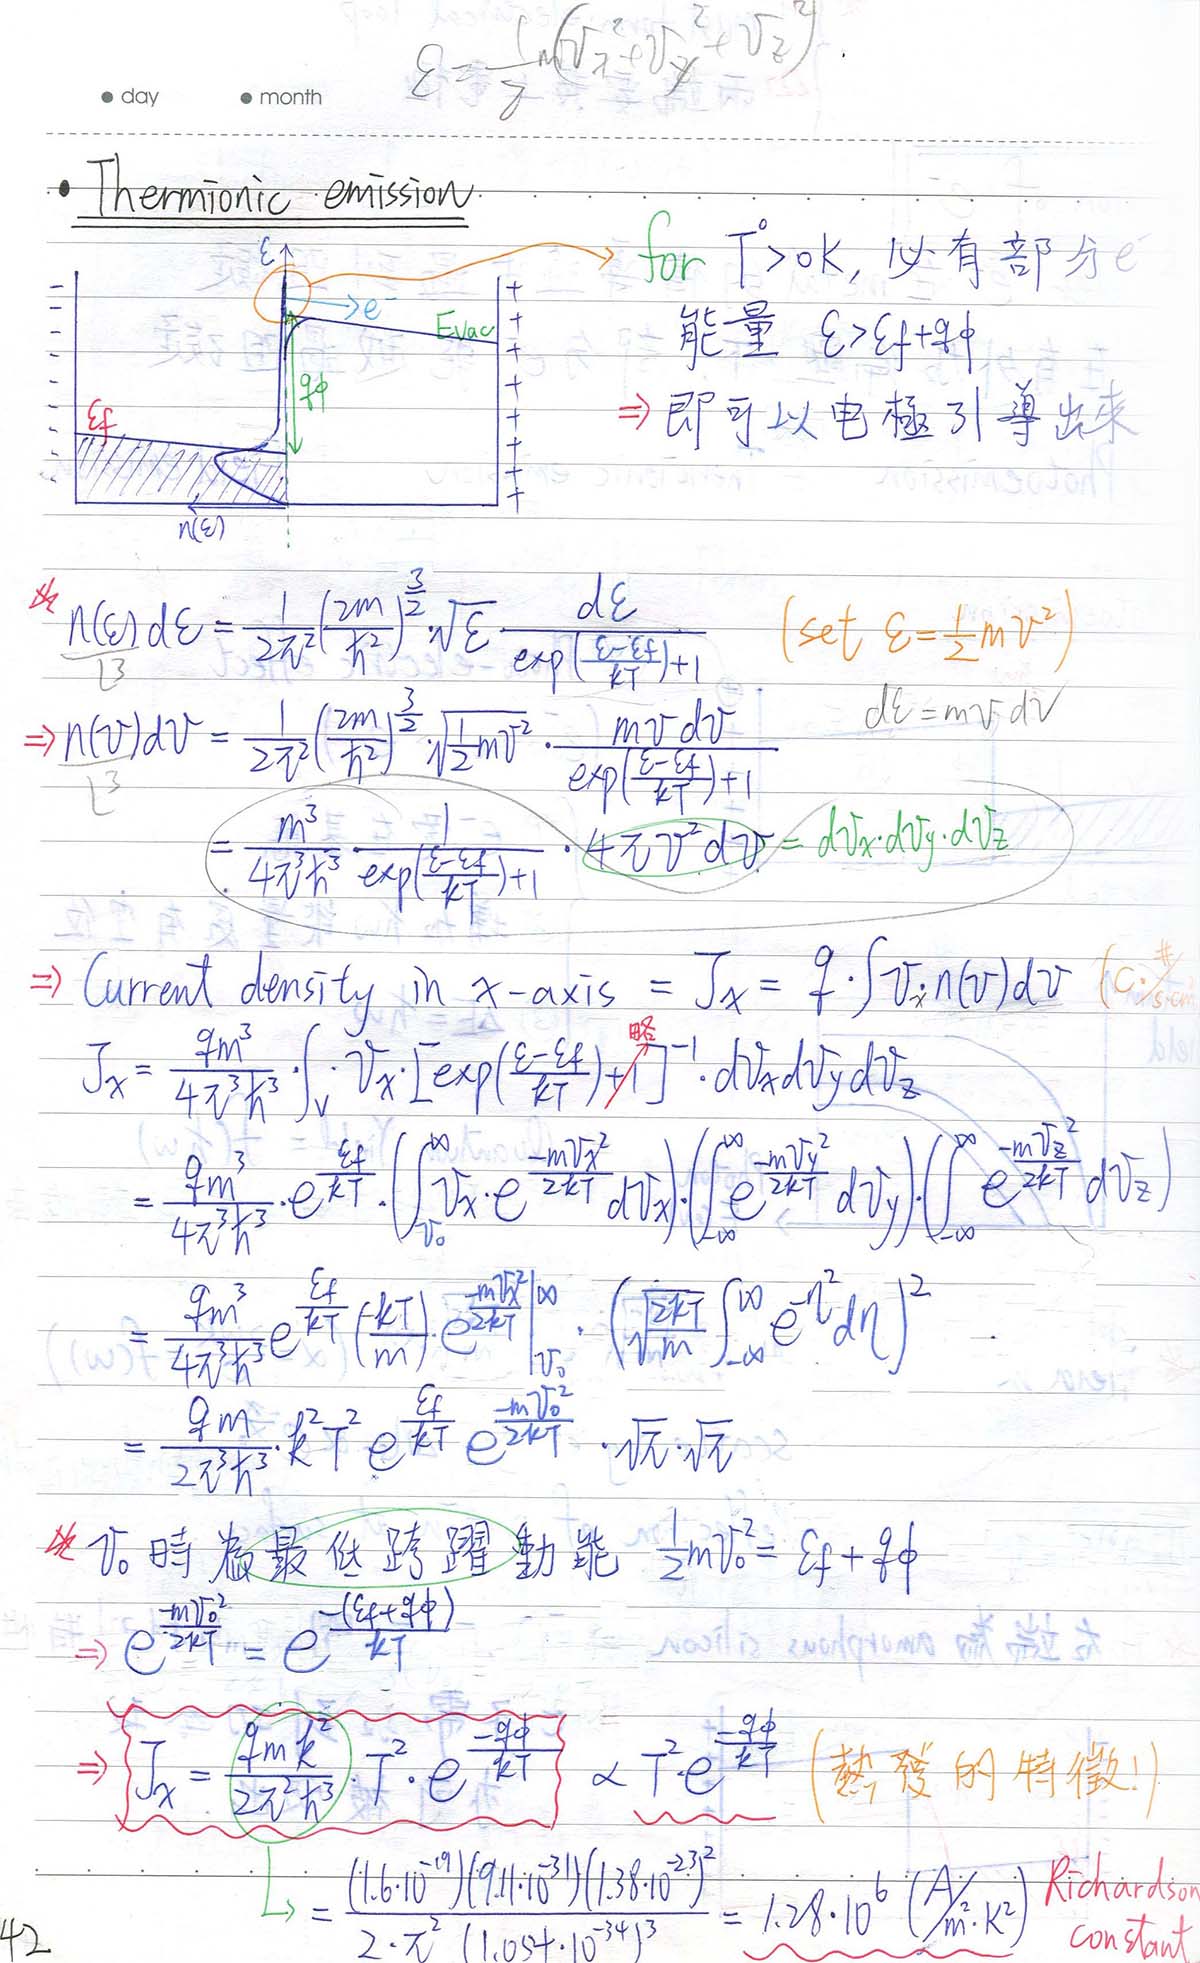 ε = 1/2 m(Vx² + Vy² + Vz²)
• day • month
• Thermionic emission
ε
for T°>0K, 必有部分e⁻
能量 ε>εf+qφ
⇒ 即可以电極引導出來
e⁻
Evac
qφ
εf
n(ε)
n(ε)dε/L³ = 1/2π² (2m/ħ²)^(3/2) · √ε · dε/(exp((ε-εf)/kT)+1) (set ε=½mv²)
dε = mv dv
⇒ n(v)dv/L³ = 1/2π² (2m/ħ²)^(3/2) · √(½mv²) · mv dv/(exp((ε-εf)/kT)+1)
= m³/4π³ħ³ · 1/(exp((ε-εf)/kT)+1) · 4πv²dv = dvx·dvy·dvz
⇒ Current density in x-axis = Jx = q·∫vx n(v)dv (C·#/s·cm
Jx = qm³/4π³ħ³ · ∫v · vx · [exp((ε-εf)/kT)+1]⁻¹ · dvx dvy dvz
略
= qm³/4π³ħ³ · e^(εf/kT) · (∫_{v₀}^{∞} vx · e^(-mvx²/2kT) dvx) · (∫_{-∞}^{∞} e^(-mvy²/2kT) dvy) · (∫_{-∞}^{∞} e^(-mvz²/2kT) dvz)
= qm³/4π³ħ³ e^(εf/kT) (-kT/m) · e^(-mvx²/2kT) |_{v₀}^{∞} · (√(2kT/m) ∫_{-∞}^{∞} e^(-η²) dη)²
= qm/2π³ħ³ · k²T² e^(εf/kT) e^(-mv₀²/2kT) · √π · √π
v₀ 時為最低跨躍動能 ½mv₀² = εf + qφ
⇒ e^(-mv₀²/2kT) = e^(-(εf+qφ)/kT)
⇒ Jx = qmk²/2π²ħ³ · T² · e^(-qφ/kT) ∝ T²·e^(-qφ/kT) (熱發的特徵!)
↳ = (1.6·10⁻¹⁹)(9.11·10⁻³¹)(1.38·10⁻²³)² / 2·π² (1.054·10⁻³⁴)³ = 1.28·10⁶ (A/m²·K²) Richardson
constant
42